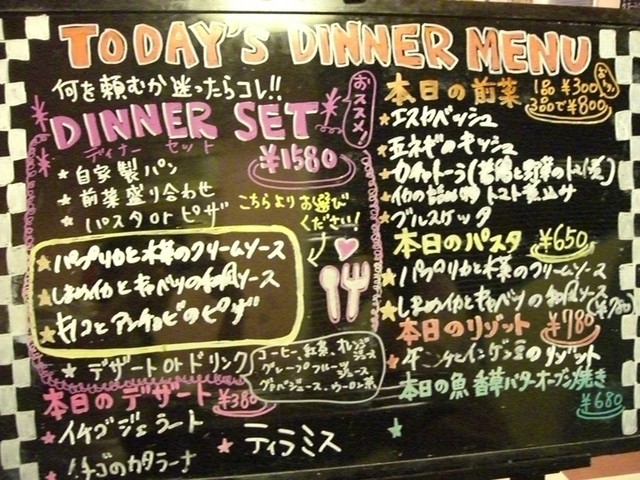 TODAY'S DINNER MENU
何を頼むか迷ったらコレ!!
おススメ!
DINNER SET
ディナー セット
¥1580
★自家製パン
★前菜盛り合わせ
★パスタ or ピザ
こちらよりお選びください!
★パプリカと木葉のクリームソース
★しまめイカとキャベツの和風ソース
★キノコとアンチョビのピザ
★デザート or ドリンク
コーヒー、紅茶、オレンジジュース
グレープフルーツジュース
グァバジュース、ウーロン茶
本日のデザート ¥380
★イチゴジェラート
★イチゴのカタラーナ
★ティラミス
本日の前菜
1品 ¥300
3品で ¥800
★エスカベッシュ
★玉ネギのキッシュ
★カポナータ
★イカの トマト煮込み
★ブルスケッタ
本日のパスタ ¥650
★パプリカと木葉のクリームソース
★しまめイカとキャベツの和風ソース ¥780
本日のリゾット ¥780
★インゲン豆のリゾット
本日の魚 香草バターオーブン焼き
¥680